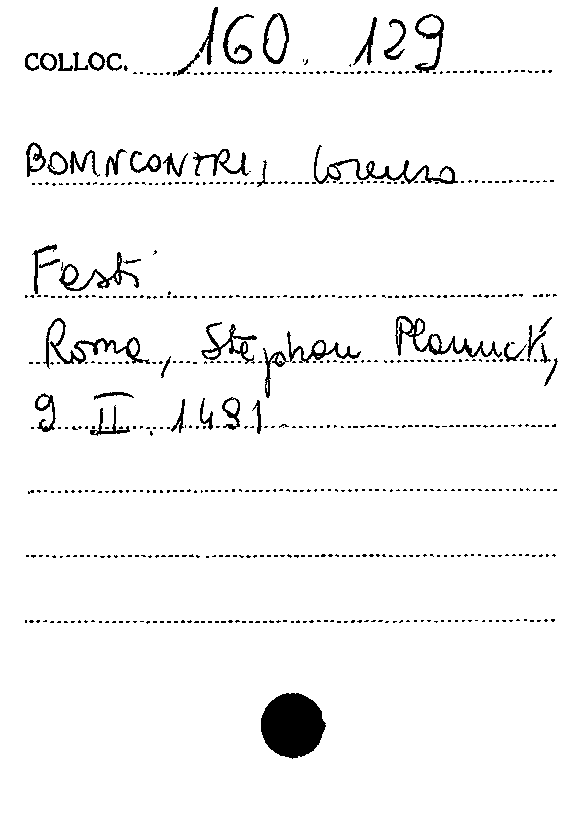 COLLOC. 160. 129
BOMNCONTRI, Lorenzo
Fasti.
Roma, Stephan Plannck,
9 II. 1491